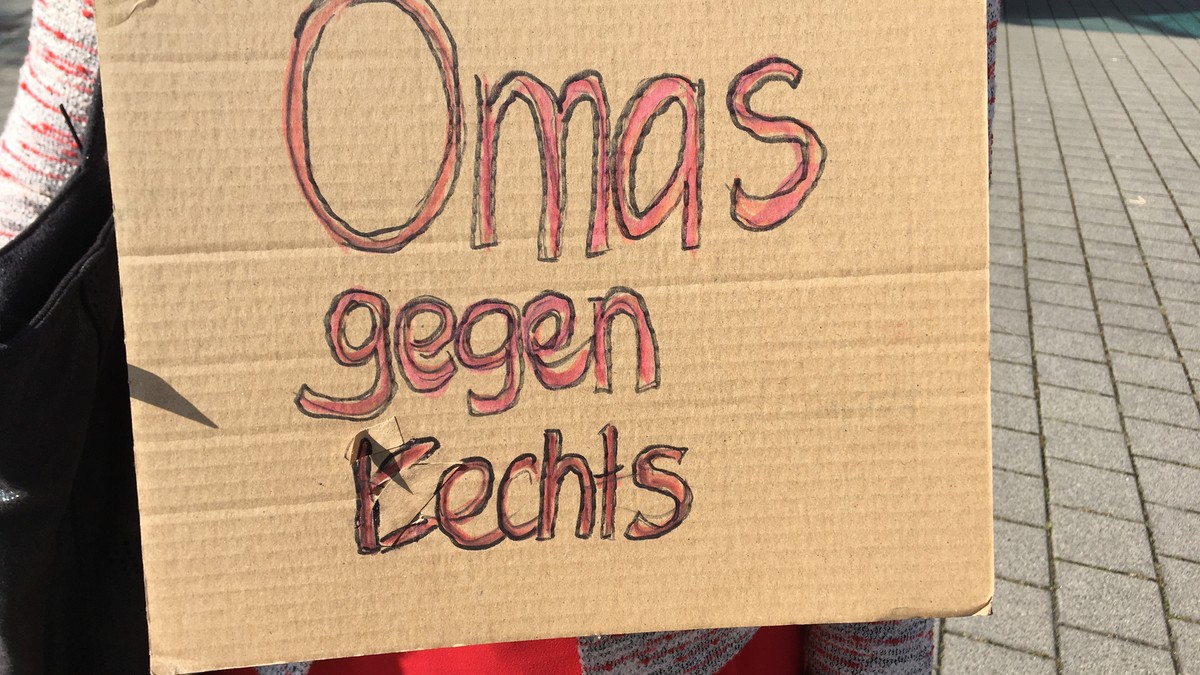 Omas
gegen
Rechts